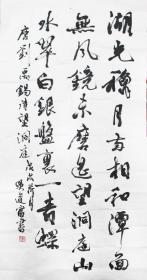 湖光秋月方相和潭面
無風鏡未磨遥望洞庭山
水翠白銀盤裏一青螺
唐劉禹錫詩望洞庭